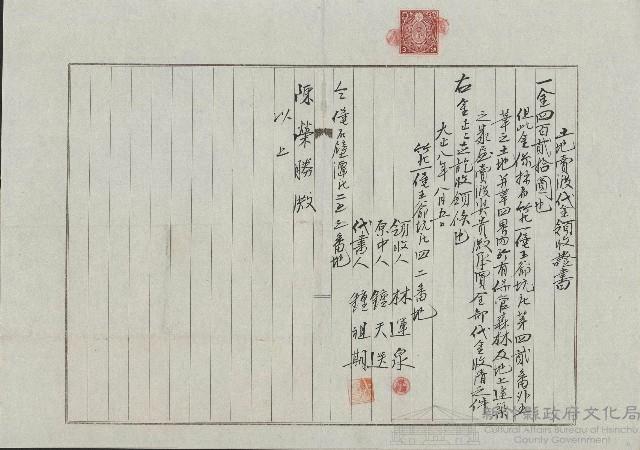 土地賣渡代金領收證書
一金四百貳拾圓也
但此金係抹
竹北一堡玉節坑庄第四貳番外五
筆之土地并筆四界內所有
森林及地上建
賣渡
全部代金收清之件
右金正之迄領收候也
大正八年八月五日
竹北一堡玉節坑庄四二番地
領收人 林運泉
原中人 鍾天送
代書人 鍾祖期
仝堡石壁潭庄二五三番地
陳榮勝殿
以上
新竹縣政府文化局
Cultural Affairs Bureau of Hsinchu
County Government